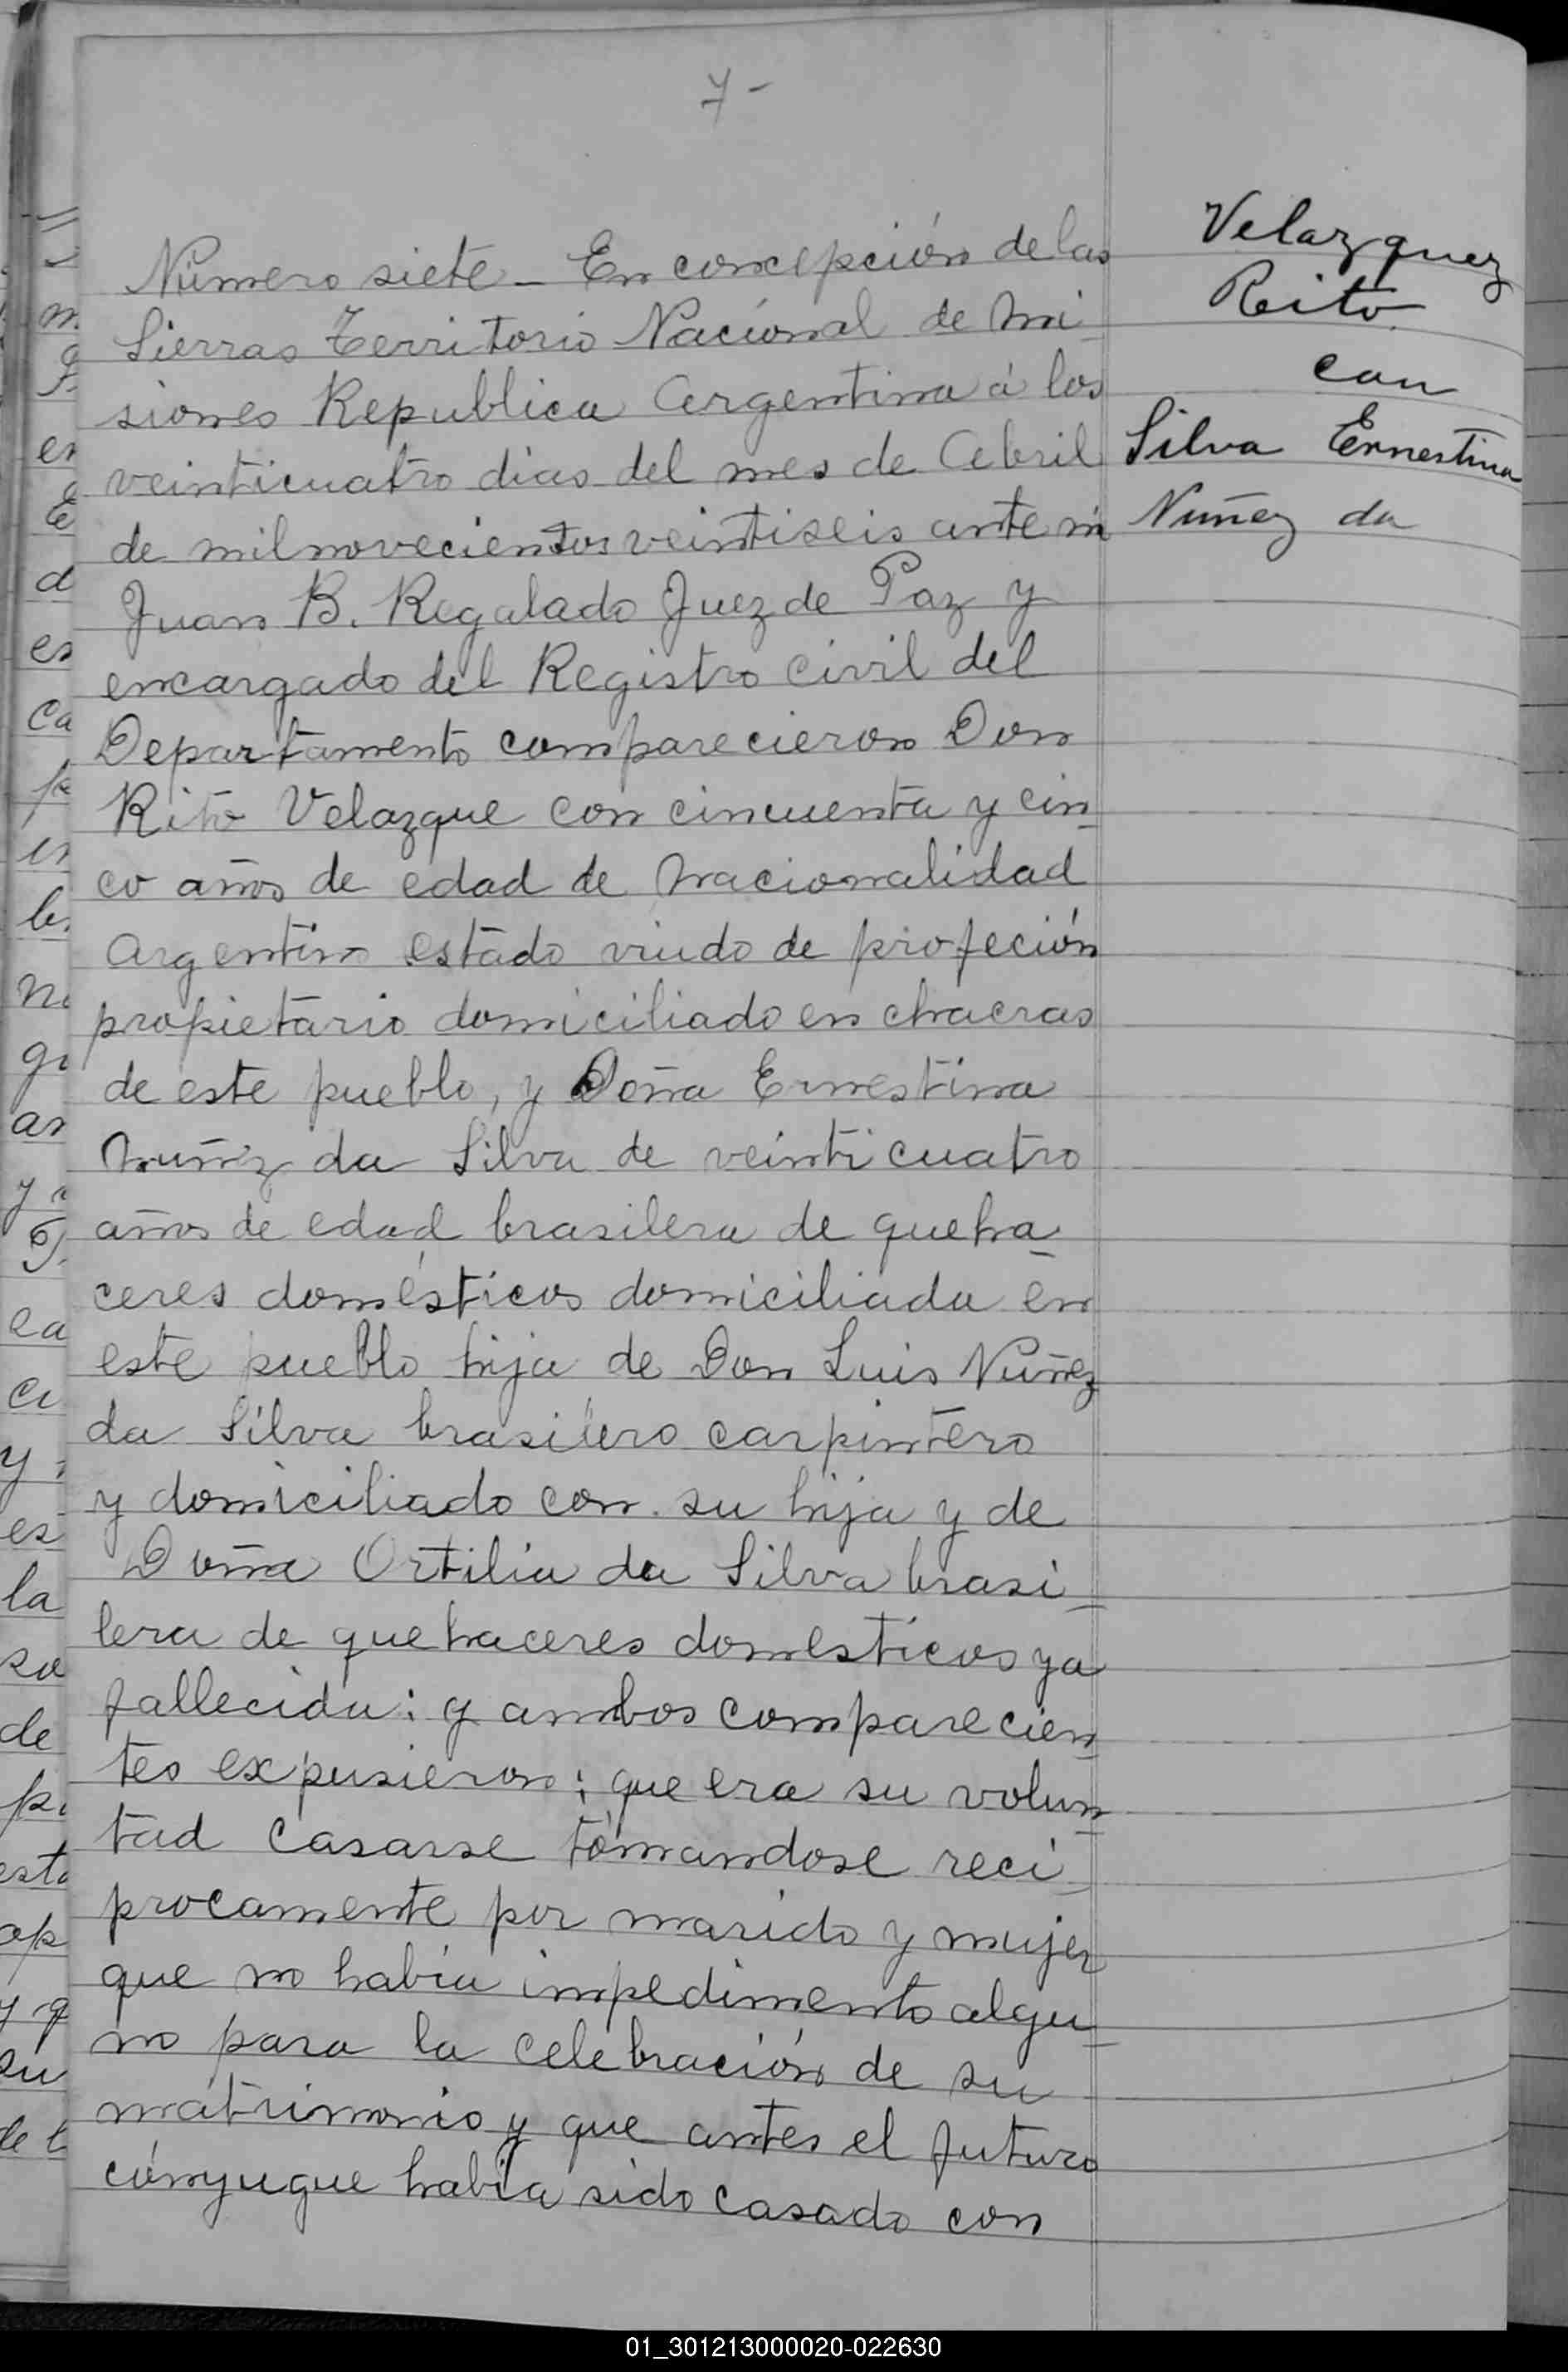 7-
Número siete - En concepción de las
Sierras Territorio Nacional de Mi_
siones Republica Argentina á los
veinticuatro dias del mes de Abril
de milnovecientos veintiseis ante mi
Juan B. Regalado Juez de Paz y
encargado del Registro civil del
Departamento comparecieron Don
Rito Velazque con cincuenta y cin_
co años de edad de nacionalidad
argentino estado viudo de profeción
propietario domiciliado en chacras
de este pueblo, y Doña Ernestina
Nuñez da Silva de veinticuatro
años de edad brasilera de queha_
ceres domésticos domiciliada en
este pueblo hija de Don Luis Nuñez
da Silva brasilero carpintero
y domiciliado con su hija y de
Doña Ortilia da Silva brasi_
lera de quehaceres domesticos ya
fallecida: y ambos comparecien_
tes expusieron: que era su volun_
tad casarse tomandose reci_
procamente por marido y mujer
que no había impedimento algu_
no para la celebración de su
matrimonio y que antes el futuro
cónyugue había sido casado con
Velazquez
Rito
con
Silva Ernestina
Nuñez da
01_301213000020-022630